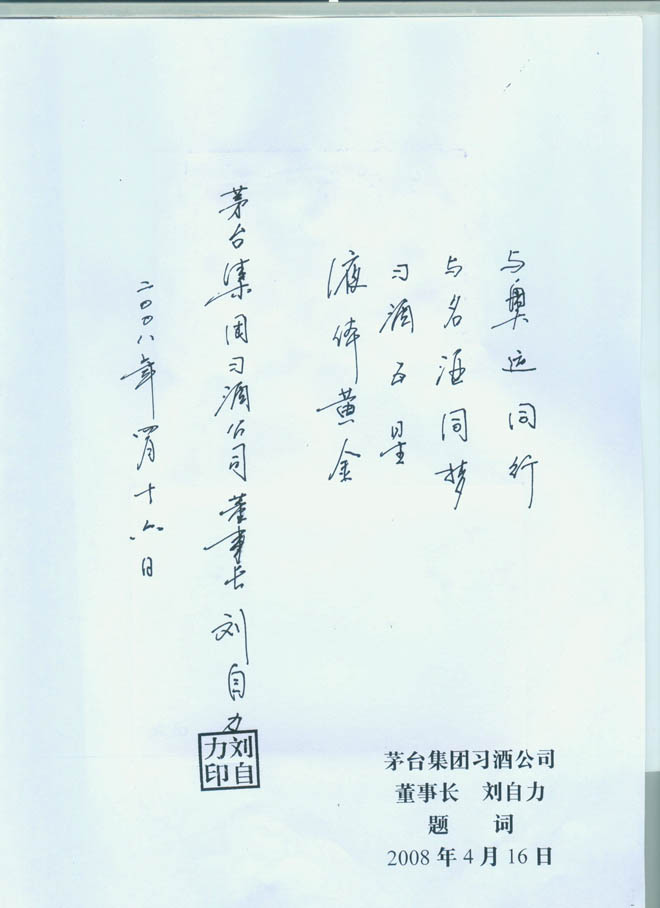 与奥运同行
与名酒同梦
习酒五星
液体黄金
茅台集团习酒公司董事长 刘自力
二〇〇八年四月十六日
刘自力印
茅台集团习酒公司
董事长 刘自力
题 词
2008年4月16日